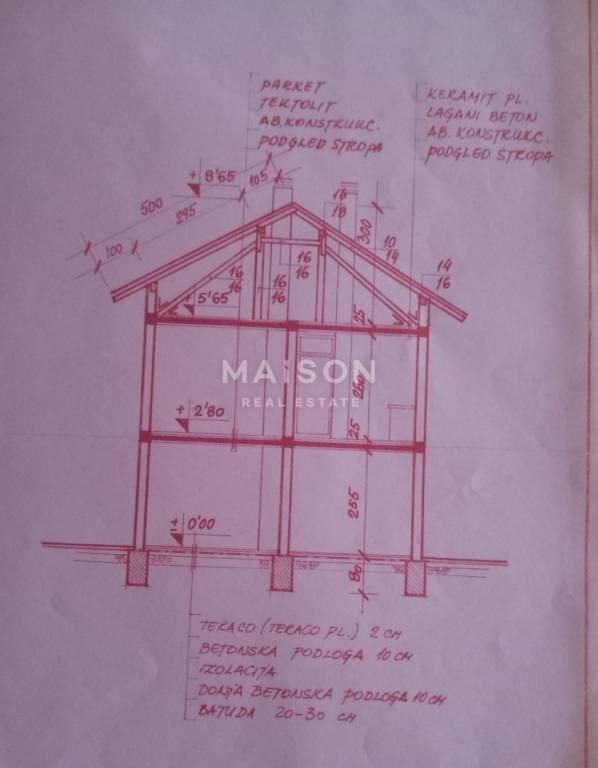 PARKET
TEKTOLIT
AB. KONSTRUKC.
PODGLED STROPA
KERAMIT PL.
LAGANI BETON
AB. KONSTRUKC.
PODGLED STROPA
+ 8'65
105
500
295
100
16
18
300
10
14
16
16
16
16
16
16
14
16
+ 5'65
25
MAISON
REAL ESTATE
260
+ 2'80
25
255
± 0'00
80
TERACO (TERACO PL.) 2 CM
BETONSKA PODLOGA 10 CM
IZOLACIJA
DONJA BETONSKA PODLOGA 10 CM
BATUDA 20-30 CM